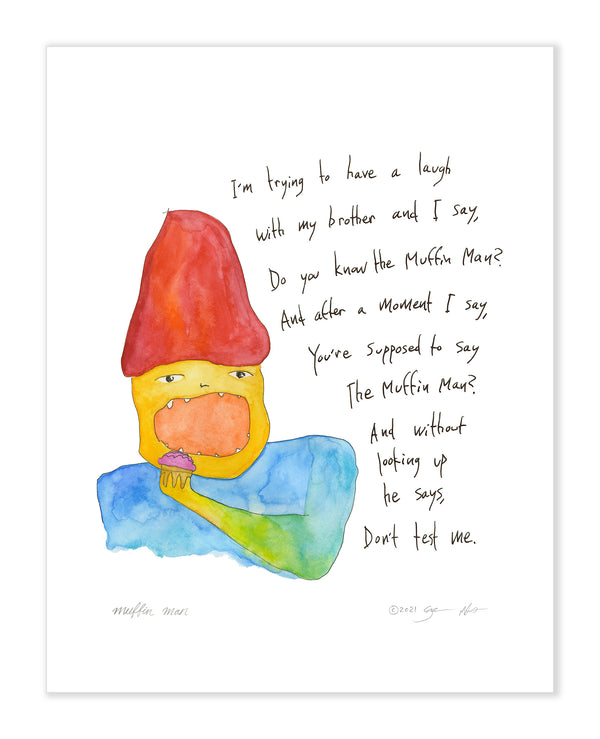 I'm trying to have a laugh
with my brother and I say,
Do you know the Muffin Man?
And after a moment I say,
You're supposed to say
The Muffin Man?
And without
looking up
he says,
Don't test me.
muffin man
©2021